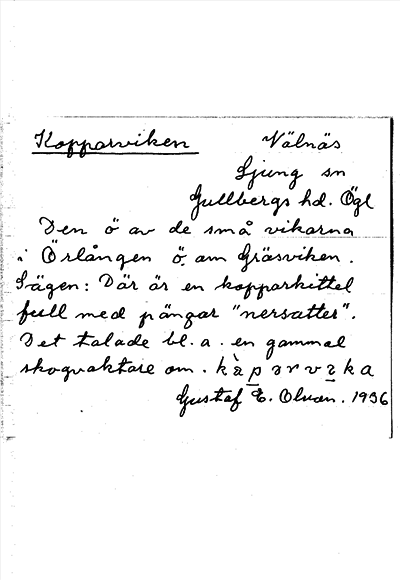 Kopparviken Välnäs
Ljung sn
Gullbergs hd. Ögl
Den ö av de små vikarna
i Örlången ö. om Gräsviken.
Sägen: Där är en kopparkittel
full med pängar "nersatter".
Det talade bl. a. en gammal
skogvaktare om.
Gustaf E. Olson. 1936